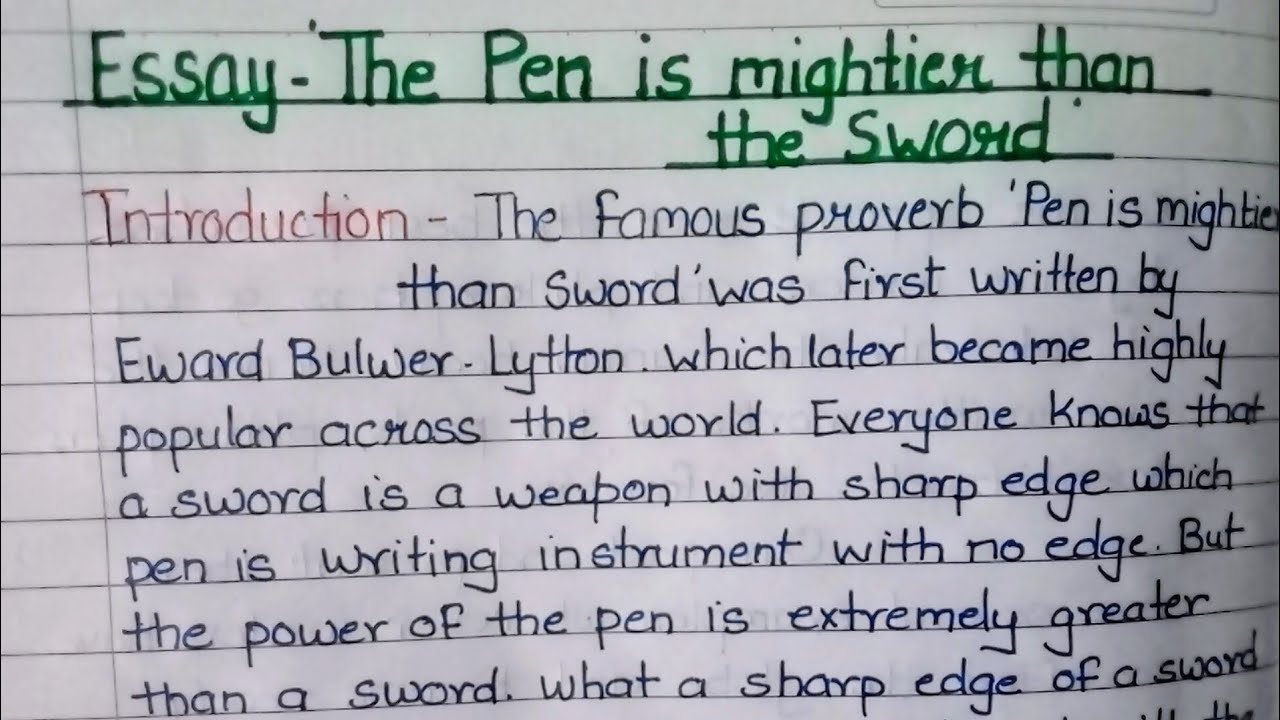 Essay-'The Pen is mightier than
the Sword'
Introduction - The famous proverb 'Pen is mightier
than Sword' was first written by
Eward Bulwer-Lytton. which later became highly
popular across the world. Everyone knows that
a sword is a weapon with sharp edge which
pen is writing instrument with no edge. But
the power of the pen is extremely greater
than a sword. What a sharp edge of a sword
the